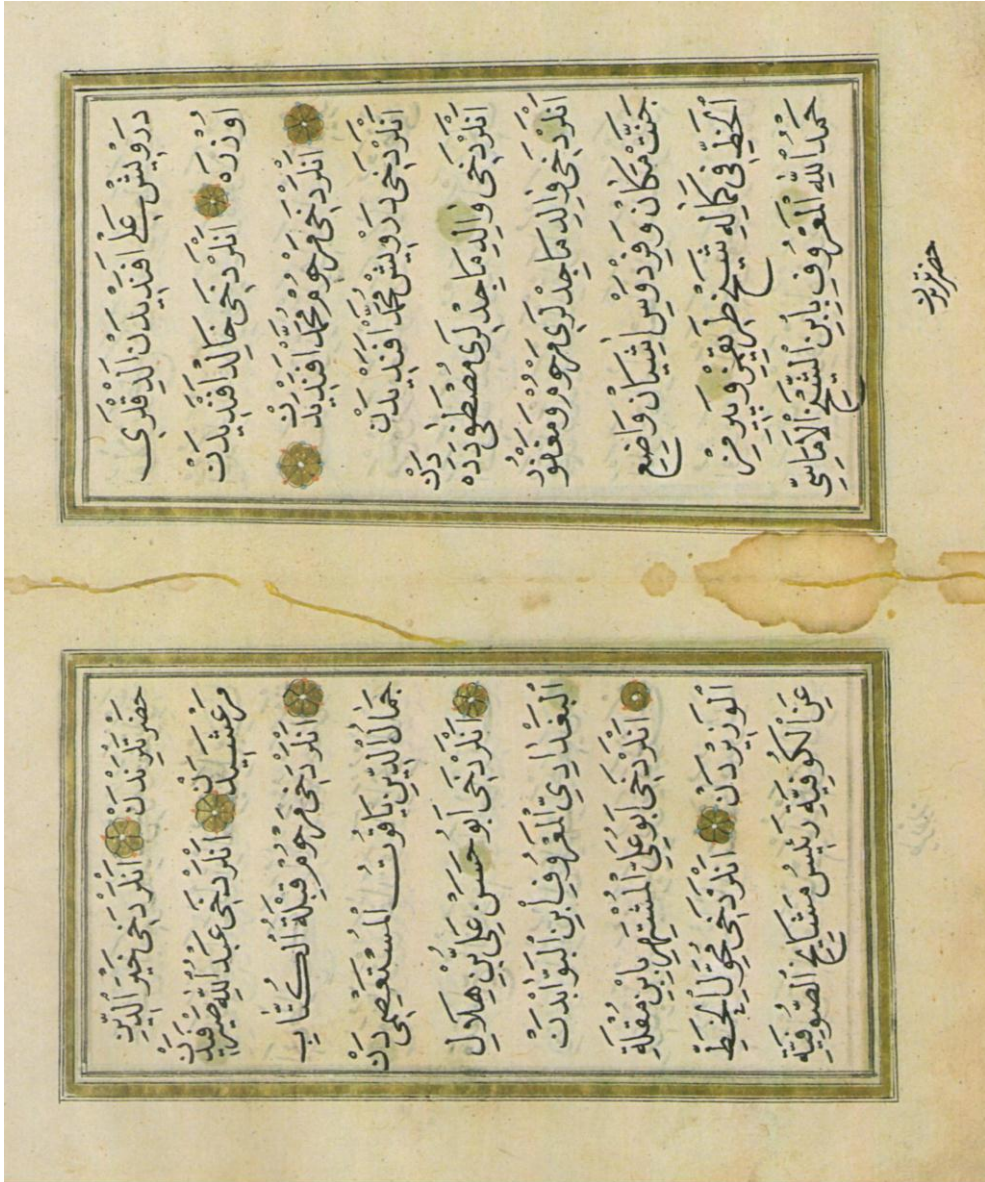 درويش علي افنديدن الدقلري
اوزره انلر دخي خالد افنديدن
انلر دخي مرحوم محمد افنديدن
انلر دخي درويش محمد افنديدن
انلر دخي والد ماجدلري مصطفى دده دن
انلر دخي والد ماجدلري مرحوم ومغفور
جنت مكان وفردوس اشيان واضع
الخط في كماله شيخ طريقين وپيرمز
حمد الله المعروف بابن الشيخ الاماسي
حضرتلرندن
حضرتلرندن انلر دخي خير الدين
مرعشيدن انلر دخي عبد الله صيرفيدن
انلر دخي مرحوم قبلة الكتاب
جمال الدين ياقوت المستعصمي دن
انلر دخي ابو حسن علي بن هلال
البغدادي المعروف ابن البوابدن
انلر دخي ابو علي المشتهر بابن مقلة
الوزيردن انلر دخي محول الخط
عن الكوفية رئيس مشايخ الصوفية